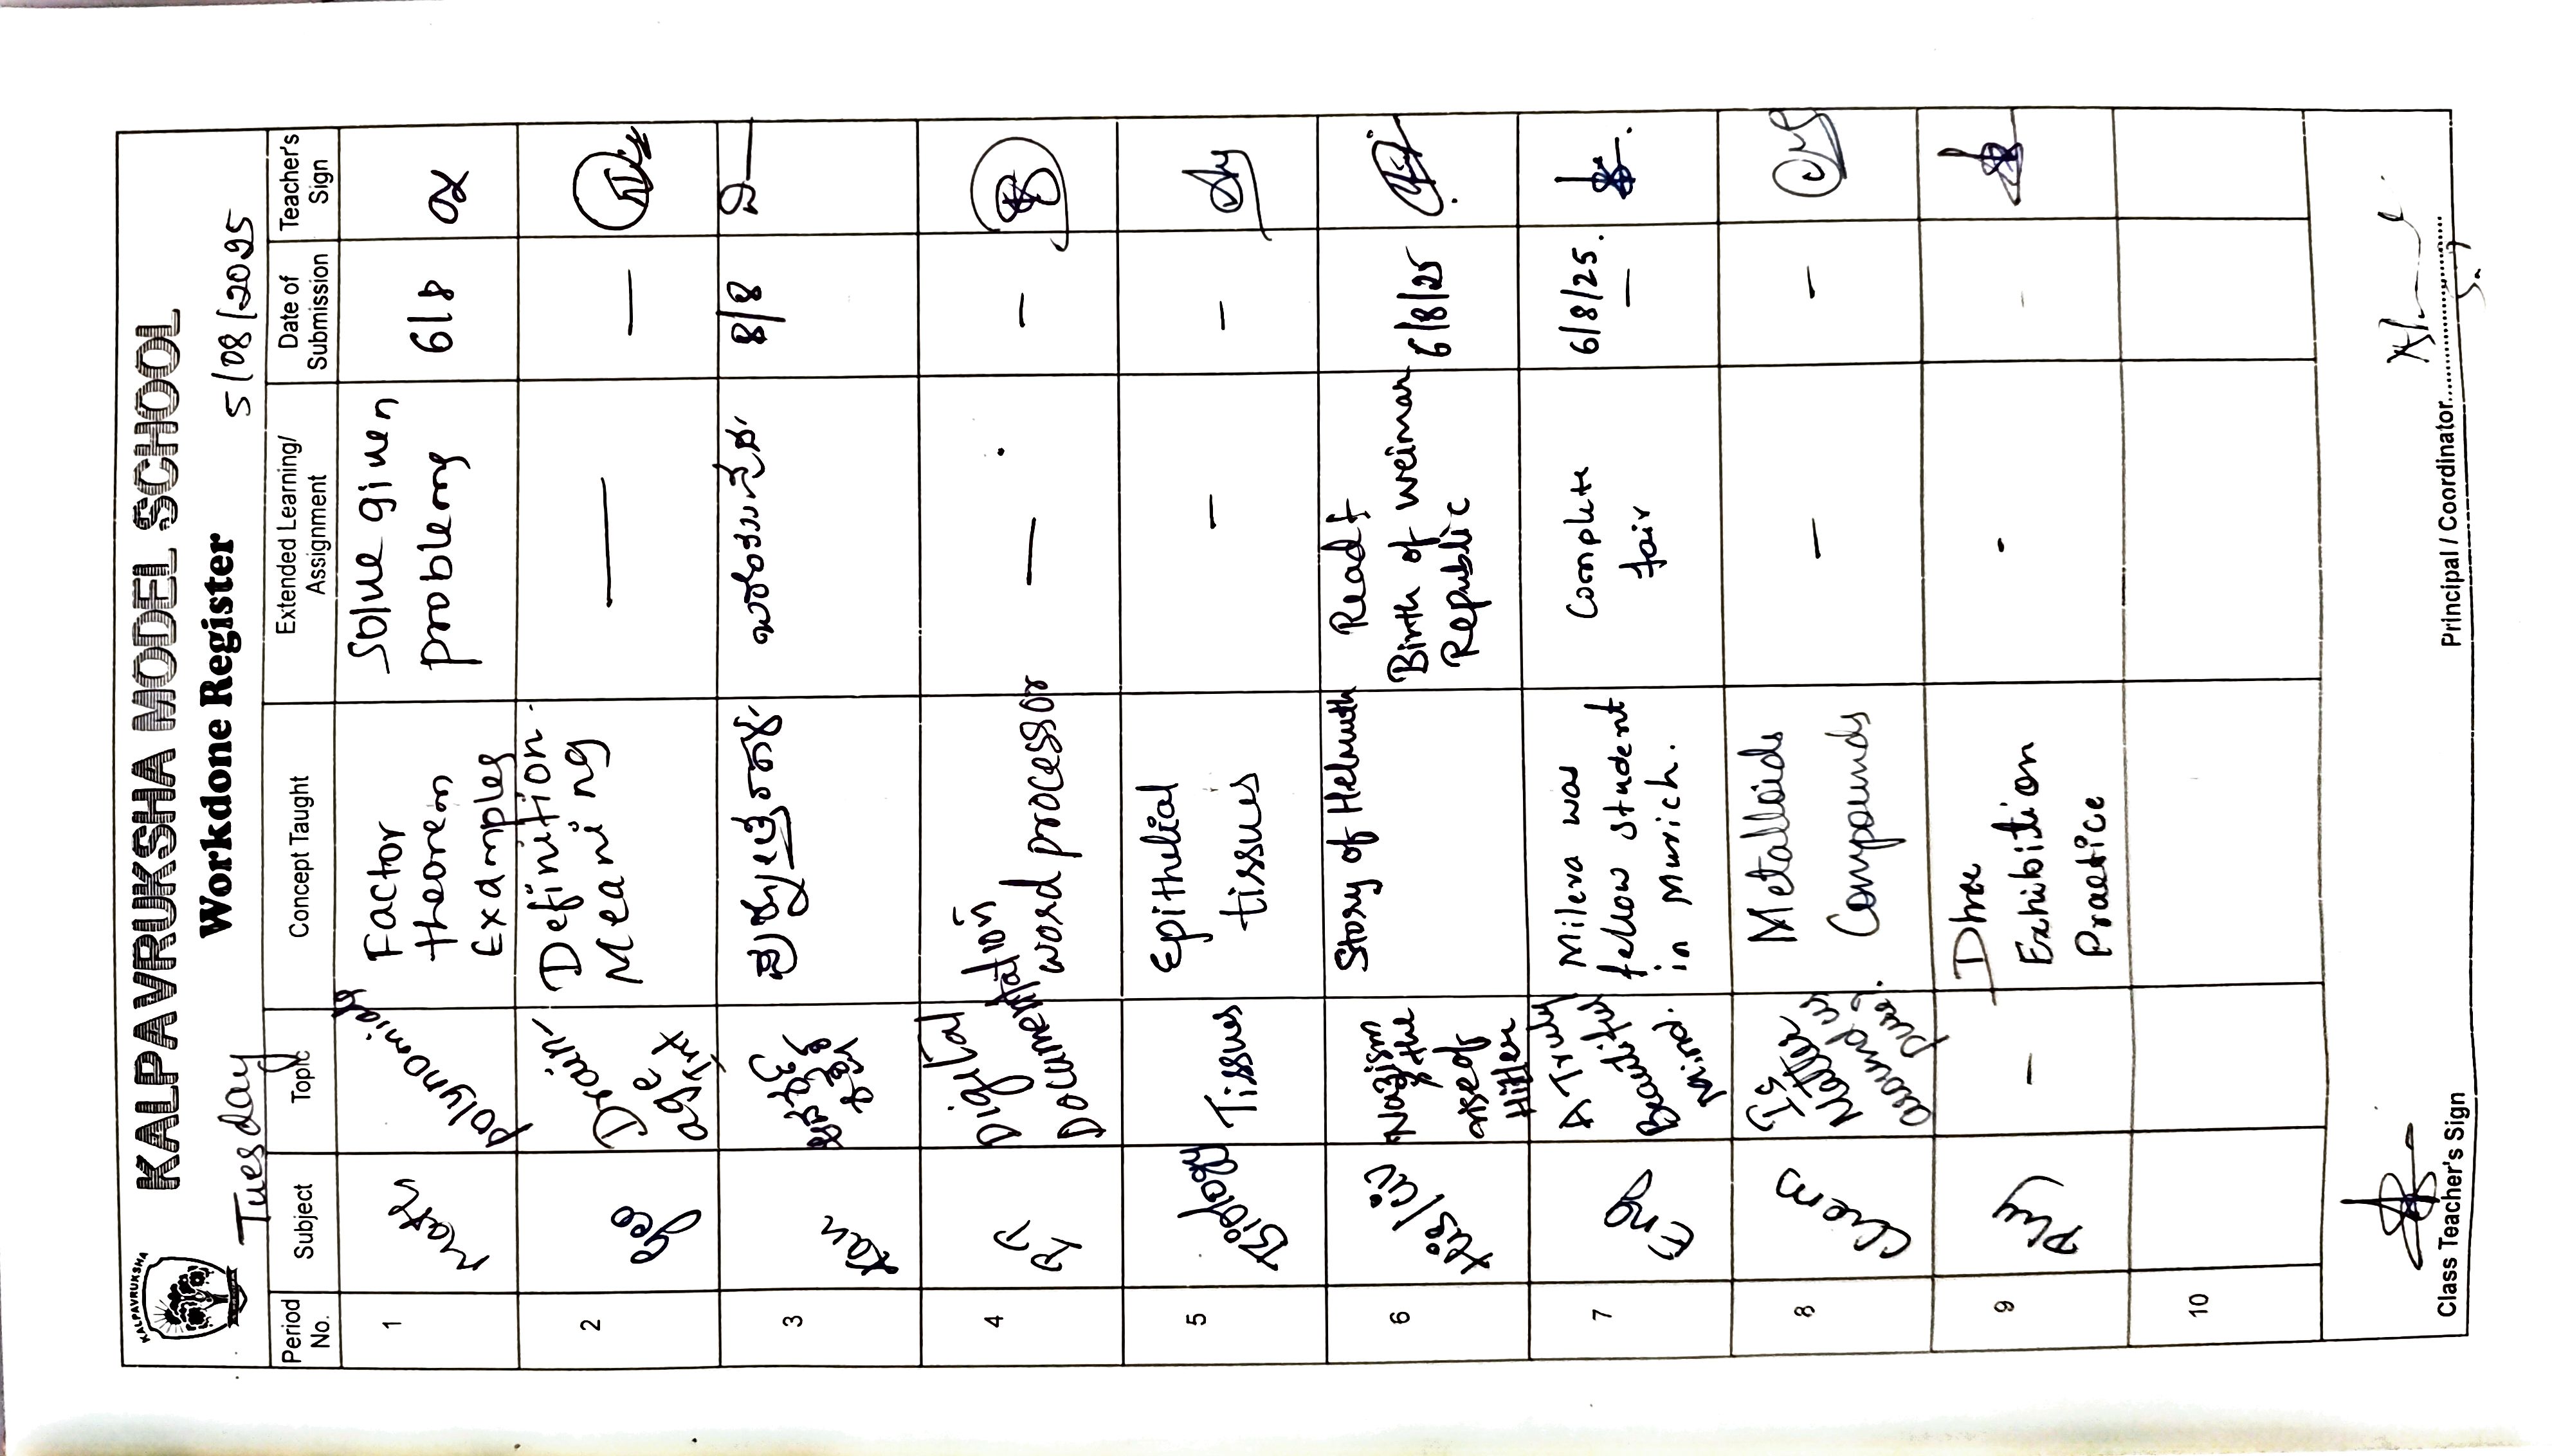 KALPAVRUKSHA
KALPAVRUKSHA MODEL SCHOOL
Workdone Register
Tuesday
5/08/2025
Period No.
Subject
Topic
Concept Taught
Extended Learning/ Assignment
Date of Submission
Teacher's Sign
1
Maths
Polynomials
Factor
theorem
Examples
Solve given
problems
6/8
2
Geo
Drain-
age Int
Definition.
Meaning
—
—
3
Kan
8/8
4
Digital
Documentation
word processor
—
—
5
Biology
Tissues
Epithelial
tissues
—
—
6
His/Civ
Nazism
& the
rise of
Hitler
Story of Helmuth
Read
Birth of Weimar
Republic
6/8/25
7
Eng
A Truly
Beautiful
Mind.
Mileva was
fellow student
in Munich.
Complete
fair
6/8/25.
—
8
Chem
Is
Matter
around us
pure?
Metalloids
Compounds
—
—
9
Phy
—
Exhibition
Practice
10
Class Teacher's Sign
Principal / Coordinator